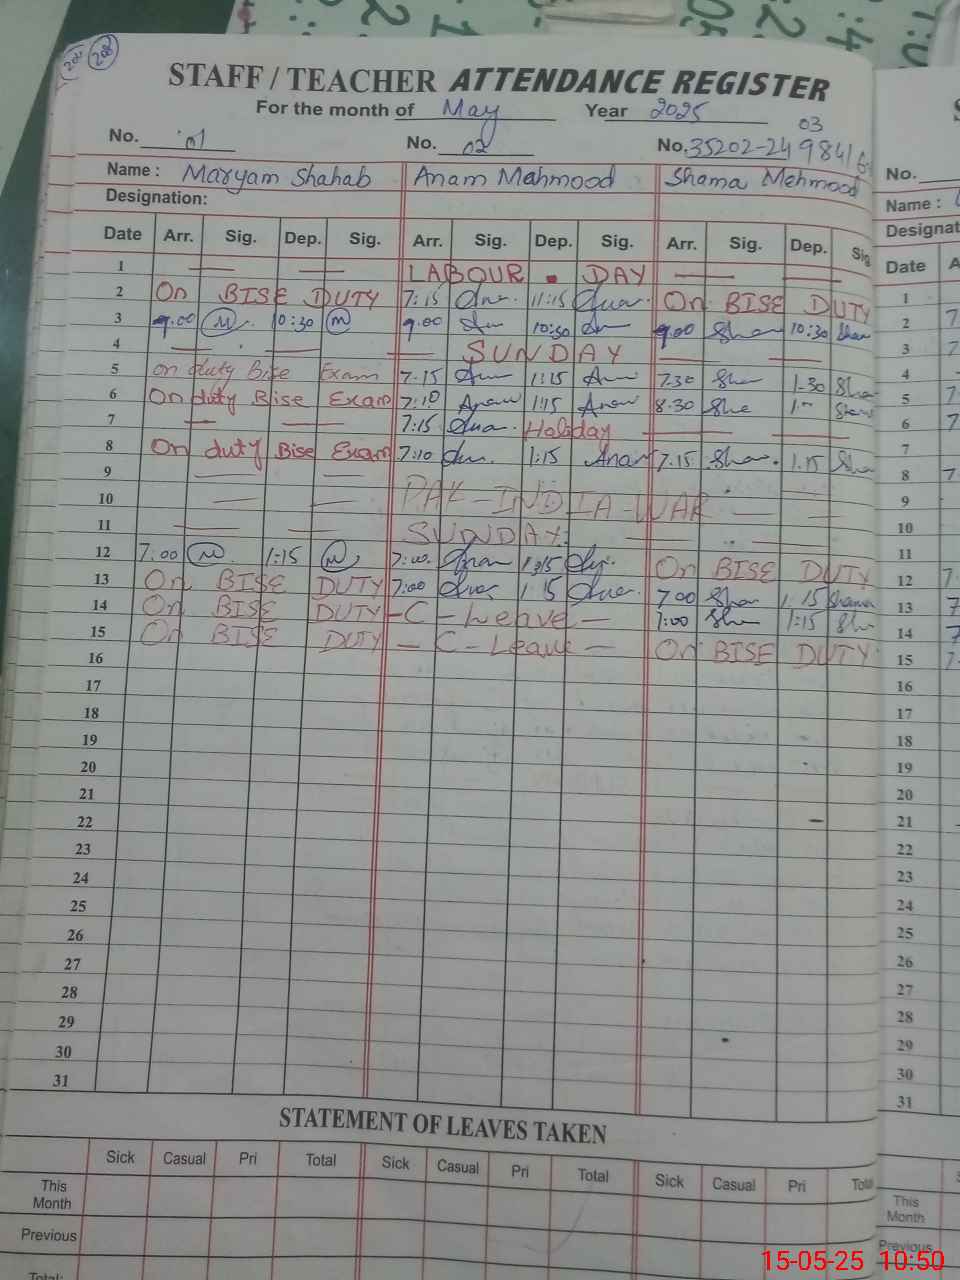 208
STAFF / TEACHER ATTENDANCE REGISTER
For the month of May Year 2025
03
No. 01 No. 02 No. 35202-2498416
Name : Maryam Shahab Anam Mahmood Shama Mehmood
Designation:
Date Arr. Sig. Dep. Sig. Arr. Sig. Dep. Sig. Arr. Sig. Dep. Sig
1 LABOUR DAY
2 On BISE DUTY 7:15 11:15 On BISE DUTY
3 9.00 M 10:30 M 9.00 10:30 9.00 Sha 10:30 Sham
4 SUNDAY
5 on duty Bise Exam 7.15 1:15 7.30 Sha 1.30 Sha
6 On duty Bise Exam 7:10 Anam 1:15 Anam 8.30 Sha 1
7 7:15 Holiday
8 On duty Bise Exam 7:10 1:15 Anam 7.15 Sha 1.15 Sha
9
10 PAK-INDIA-WAR
11 SUNDAY
12 7:00 M 1:15 M 7:00 1:15 On BISE DUTY
13 On BISE DUTY 7:00 1:15 7:00 Sha 1:15 Shama
14 On BISE DUTY - C - Leave - 7:00 Sha 1:15 Sh
15 On BISE DUTY - C - Leave - On BISE DUTY
16
17
18
19
20
21
22
23
24
25
26
27
28
29
30
31
STATEMENT OF LEAVES TAKEN
Sick Casual Pri Total Sick Casual Pri Total Sick Casual Pri Total
This Month
Previous
Total:
No.
Name :
Designat
Date A
1
2 7
3 7
4
5 7
6 7
7
8 7
9
10
11
12 7
13 7
14 7
15 7
16
17
18
19
20
21
22
23
24
25
26
27
28
29
30
31
This Month
Previous
15-05-25 10:50